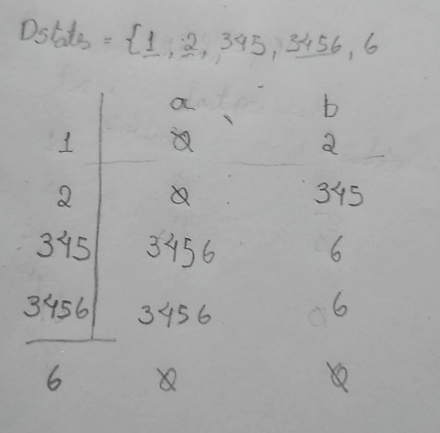 Dstats = {1, 2, 345, 3456, 6
a b
1 Ø 2
2 Ø 345
345 3456 6
3456 3456 6
6 Ø Ø